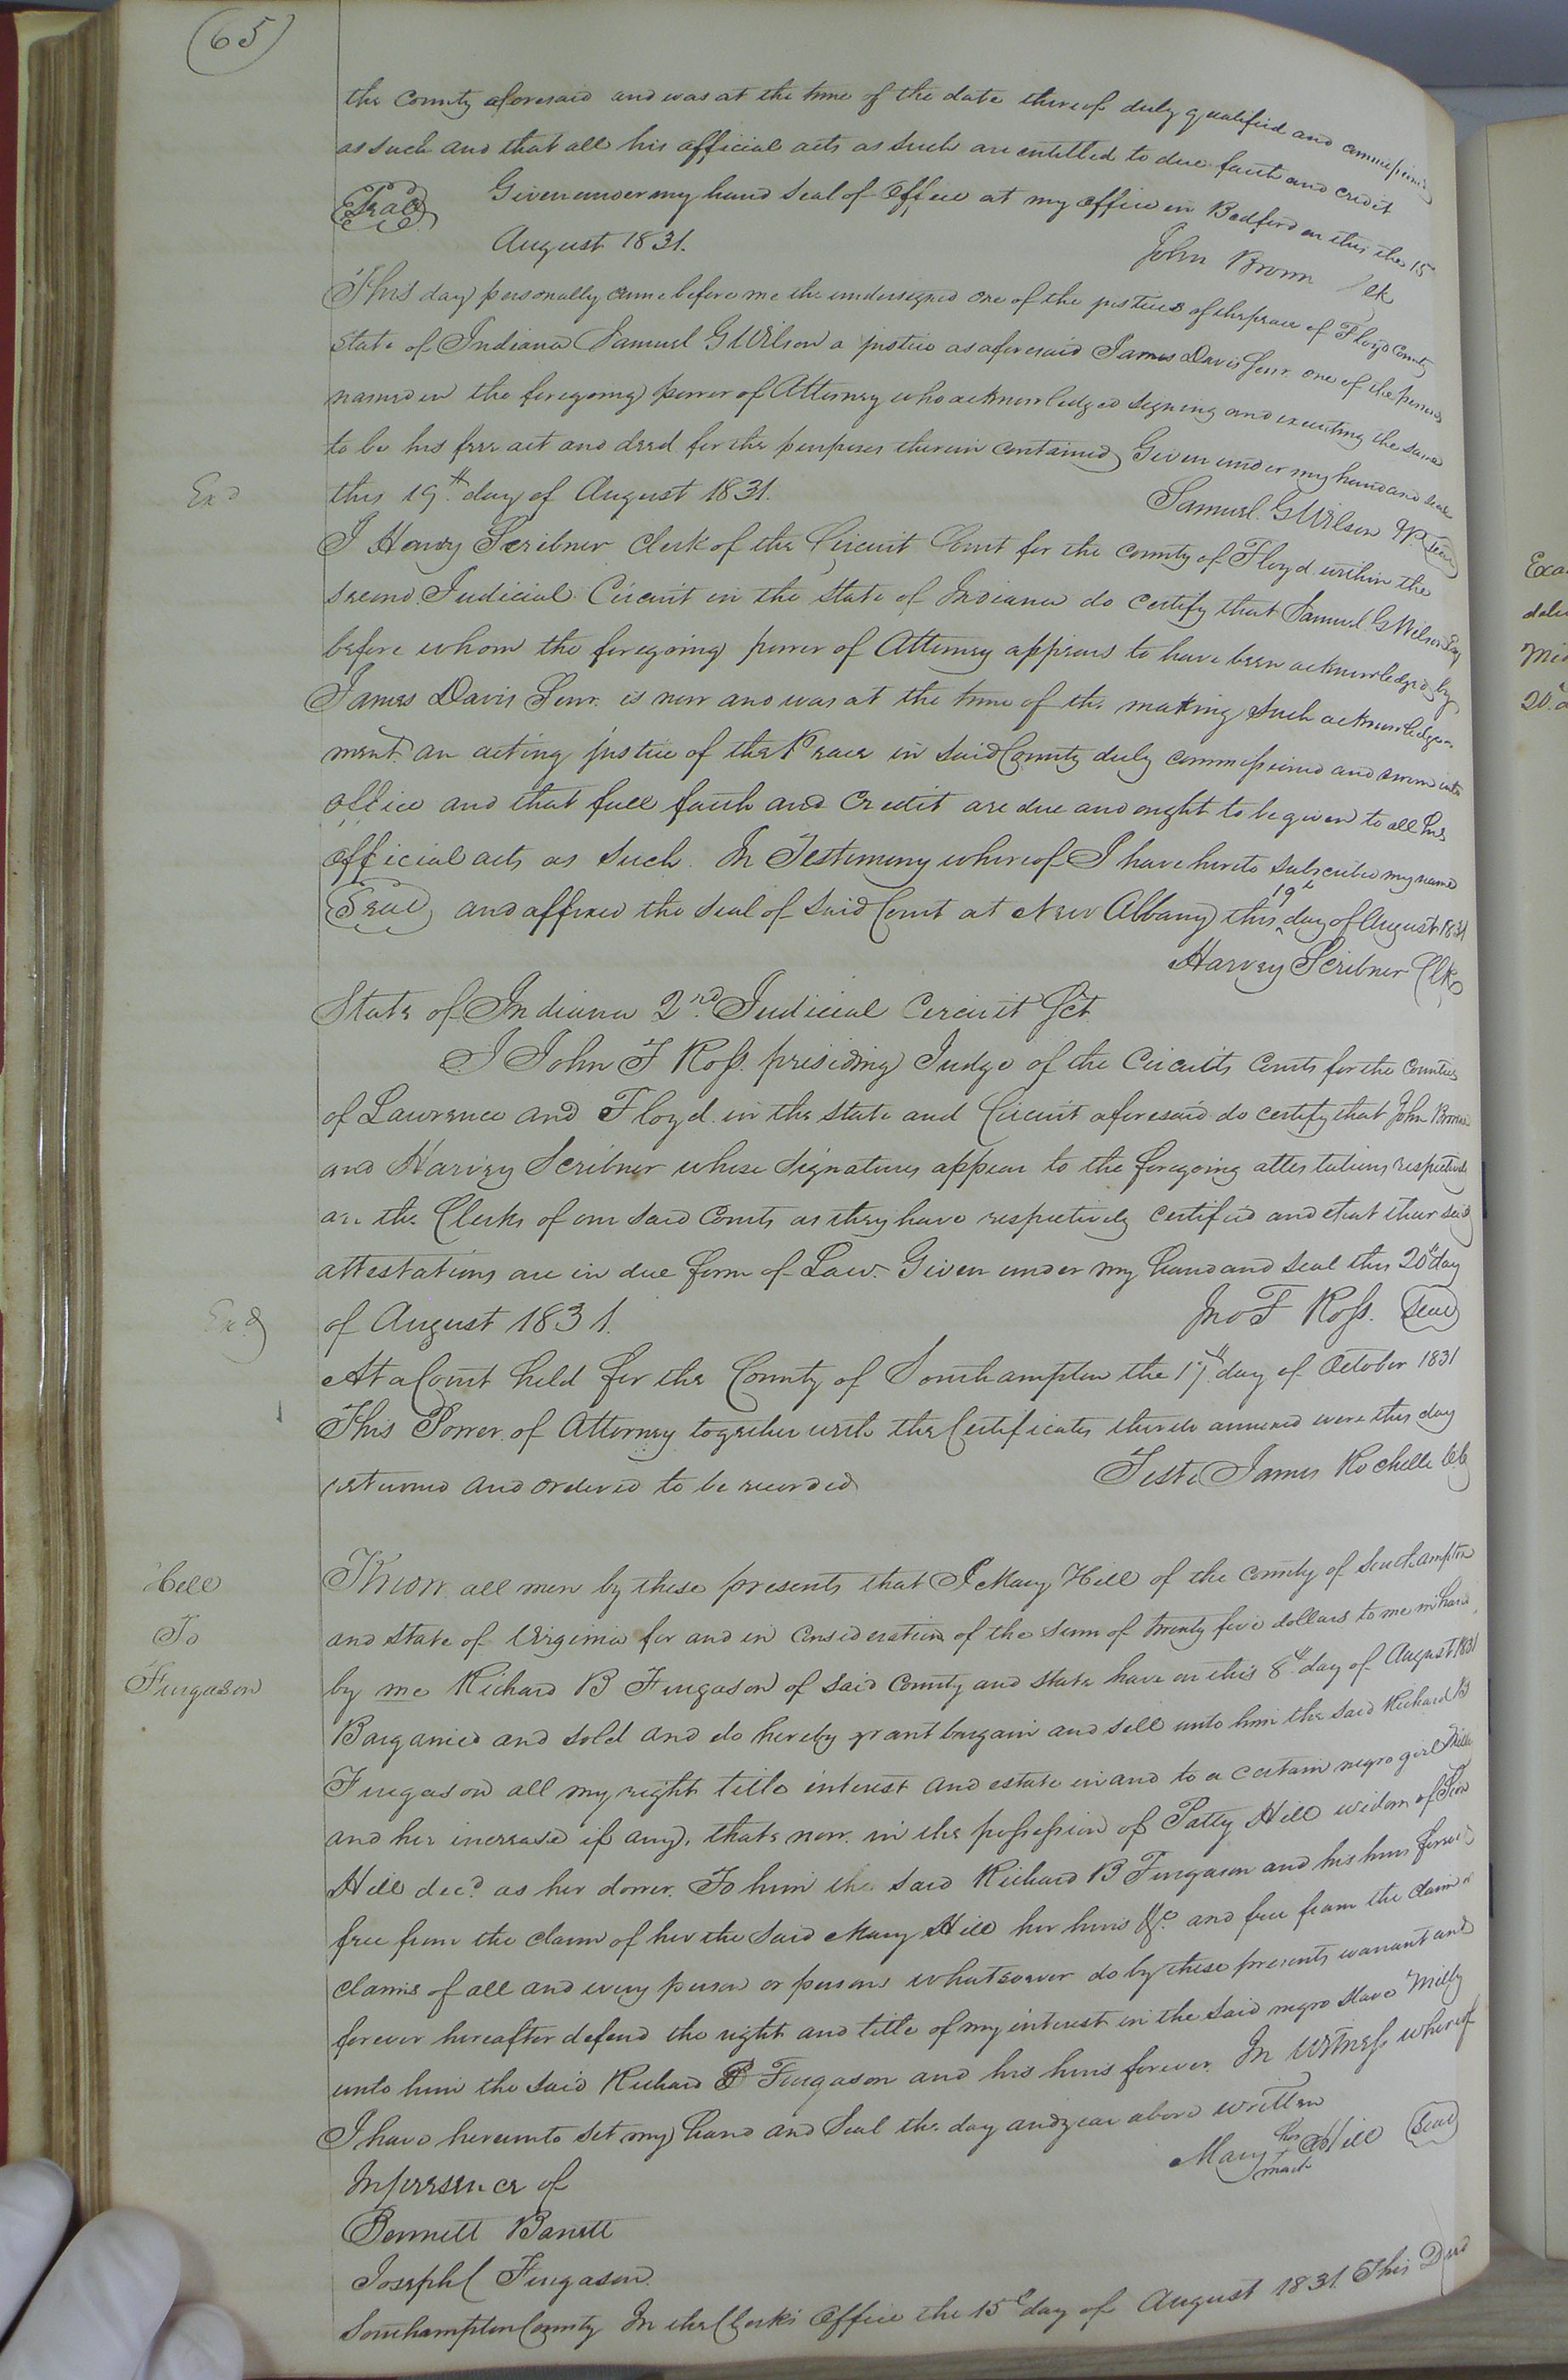 65
the County aforesaid and was at the time of the date thereof duly qualified and commissioned
as such and that all his official acts as such are entitled to due faith and credit
Seal Given under my hand seal of Office at my office in Bedford on this the 15
August 1831. John Brown Clk
This day personally came before me the undersigned one of the justices of the peace of Floyd County
State of Indiana Samuel G Wilson a justice as aforesaid James Davis Senr. one of the persons
named in the foregoing power of Attorney who acknowledged signing and executing the same
to be his free act and deed for the purposes therein contained Given under my hand and seal
Exd this 19th day of August 1831. Samuel G Wilson J.P. Seal
I Harvy Scribner Clerk of the Circuit Court for the County of Floyd within the
second Judicial Circuit in the State of Indiana do certify that Samuel G Wilson Esq
before whom the foregoing power of Attorney appears to have been acknowledged by
James Davis Senr. is now and was at the time of the making such acknowledge-
ment an acting justice of the Peace in said County duly commissioned and sworn into
office and that full faith and credit are due and ought to be given to all his
official acts as such. In Testimony whereof I have hereto subscribed my name
Seal and affixed the seal of said Court at New Albany this 19th day of August 1831
Harvey Scribner Clk
State of Indiana 2nd Judicial Circuit Sct
I John F Ross presiding Judge of the Circuits Courts for the Counties
of Lawrence and Floyd in the State and Circuit aforesaid do certify that John Brown
and Harvey Scribner whose signatures appear to the foregoing attestations respectively
are the Clerks of our said Courts as they have respectively certified and that their said
attestations are in due form of Law. Given under my hand and seal this 20th day
Exd of August 1831. Jno F Ross. Seal
At a Court held for the County of Southampton the 17th day of October 1831
This Power of Attorney together with the Certificates thereto annexed were this day
returned and ordered to be recorded Teste James Rochelle Clk
Hill
To
Fingason
Know all men by these presents that I Mary Hill of the County of Southampton
and state of Virginia for and in consideration of the sum of twenty five dollars to me in hand
by me Richard B Fingason of said County and state have on this 8th day of August 1831
Barganied and sold and do hereby grant bargain and sell unto him the said Richard B
Fingason all my right title interest and estate in and to a certain negro girl Milly
and her increase if any, thats now in the possession of Patty Hill widow of
Hill decd. as her dower. To him the said Richard B Fingason and his heirs forever
free from the claim of her the said Mary Hill her heirs &c. and free from the claim or
claims of all and every person or persons whatsoever do by these presents warrant and
forever hereafter defend the right and title of my interest in the said negro slave Milly
unto him the said Richard B Fingason and his heirs forever. In Witness whereof
I have hereunto set my hand and seal the day and year above written
Mary her X mark Hill Seal
In presence of
Bennett Barrett
Joseph C Fingason.
Southampton County In the Clerk's Office the 15th day of August 1831. This Deed
Exa
dele
Mid
20.